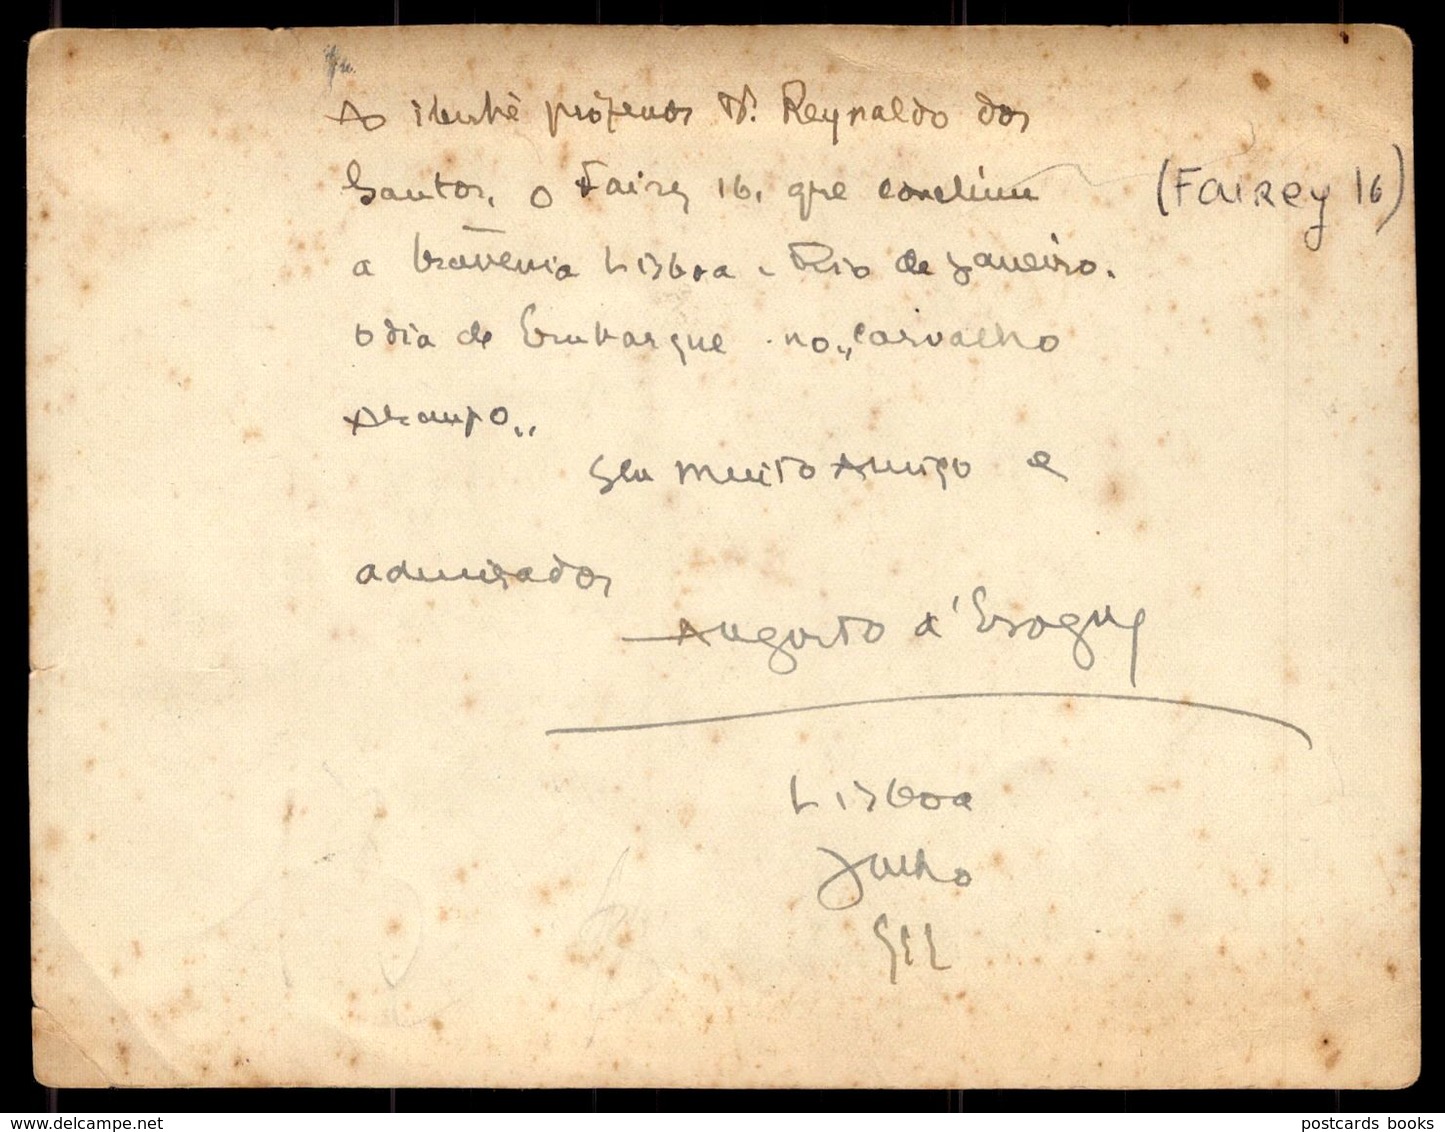 Ao ilustre professor Dr. Reynaldo dos
Santos, o Fairey 16, que concluiu
a travessia Lisboa - Rio de Janeiro.
o dia de Embarque no "Carvalho
Araujo"
Seu muito Amigo e
admirador
Augusto d'
(FAIREY 16)
Lisboa
Julho
postcards books